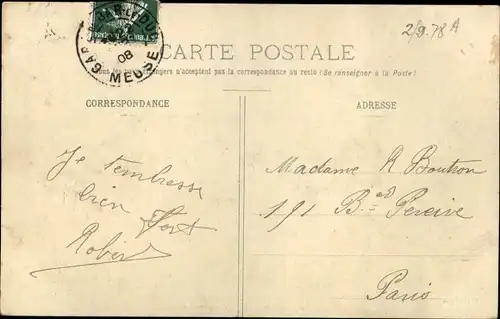 2/9.78A
BAR-LE-DUC
08
GARE MEUSE
CARTE POSTALE
Tous les pays étrangers n'acceptent pas la correspondance au recto (Se renseigner à la Poste)
CORRESPONDANCE
ADRESSE
Je t'embrasse
bien fort
Robert
Madame R Boutron
191 Bd Pereire
Paris